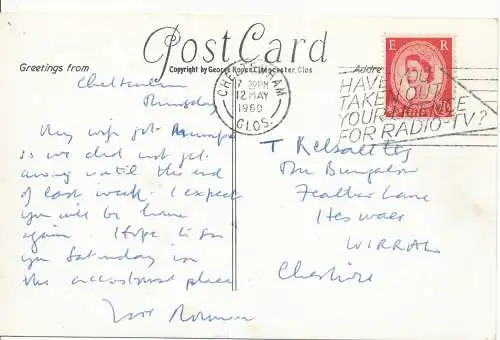 Post Card
Greetings from
Copyright by George Rowe, Cirencester, Glos
Address
CHELTENHAM
7 30PM
12 MAY
1960
GLOS.
HAVE YOU
TAKEN OUT
YOUR LICENCE
FOR RADIO-TV?
E R
Cheltenham
Thursday
My wife got Mumps
so we did not get
away until the end
of last week. I expect
you will be home
again. I hope to see
you Saturday in
the accustomed place.
Norman
T Kelsall Esq
The Bungalow
Feather Lane
Heswall
WIRRAL
Cheshire